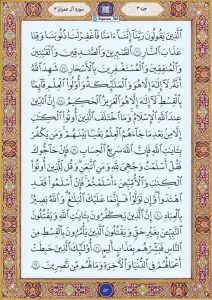 جزء ۳
سورة آل عمران ۳
ٱلَّذِينَ يَقُولُونَ رَبَّنَآ إِنَّنَآ ءَامَنَّا فَٱغْفِرْ لَنَا ذُنُوبَنَا وَقِنَا
عَذَابَ ٱلنَّارِ ١٦ ٱلصَّٰبِرِينَ وَٱلصَّٰدِقِينَ وَٱلْقَٰنِتِينَ
وَٱلْمُنفِقِينَ وَٱلْمُسْتَغْفِرِينَ بِٱلْأَسْحَارِ ١٧ شَهِدَ ٱللَّهُ
أَنَّهُۥ لَآ إِلَٰهَ إِلَّا هُوَ وَٱلْمَلَٰٓئِكَةُ وَأُو۟لُوا۟ ٱلْعِلْمِ قَآئِمًۢا
بِٱلْقِسْطِ لَآ إِلَٰهَ إِلَّا هُوَ ٱلْعَزِيزُ ٱلْحَكِيمُ ١٨ إِنَّ ٱلدِّينَ
عِندَ ٱللَّهِ ٱلْإِسْلَٰمُ وَمَا ٱخْتَلَفَ ٱلَّذِينَ أُوتُوا۟ ٱلْكِتَٰبَ
إِلَّا مِنۢ بَعْدِ مَا جَآءَهُمُ ٱلْعِلْمُ بَغْيًۢا بَيْنَهُمْ وَمَن يَكْفُرْ
بِـَٔايَٰتِ ٱللَّهِ فَإِنَّ ٱللَّهَ سَرِيعُ ٱلْحِسَابِ ١٩ فَإِنْ حَآجُّوكَ
فَقُلْ أَسْلَمْتُ وَجْهِىَ لِلَّهِ وَمَنِ ٱتَّبَعَنِ وَقُل لِّلَّذِينَ أُوتُوا۟
ٱلْكِتَٰبَ وَٱلْأُمِّيِّـۧنَ ءَأَسْلَمْتُمْ فَإِنْ أَسْلَمُوا۟ فَقَدِ
ٱهْتَدَوا۟ وَّإِن تَوَلَّوْا۟ فَإِنَّمَا عَلَيْكَ ٱلْبَلَٰغُ وَٱللَّهُ بَصِيرٌۢ
بِٱلْعِبَادِ ٢٠ إِنَّ ٱلَّذِينَ يَكْفُرُونَ بِـَٔايَٰتِ ٱللَّهِ وَيَقْتُلُونَ
ٱلنَّبِيِّـۧنَ بِغَيْرِ حَقٍّ وَيَقْتُلُونَ ٱلَّذِينَ يَأْمُرُونَ بِٱلْقِسْطِ مِنَ
ٱلنَّاسِ فَبَشِّرْهُم بِعَذَابٍ أَلِيمٍ ٢١ أُو۟لَٰٓئِكَ ٱلَّذِينَ حَبِطَتْ
أَعْمَٰلُهُمْ فِى ٱلدُّنْيَا وَٱلْءَاخِرَةِ وَمَا لَهُم مِّن نَّٰصِرِينَ ٢٢
۵۲